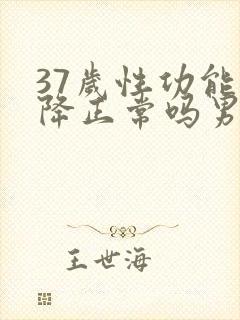 37歲性功能
降正常吗男
王世海